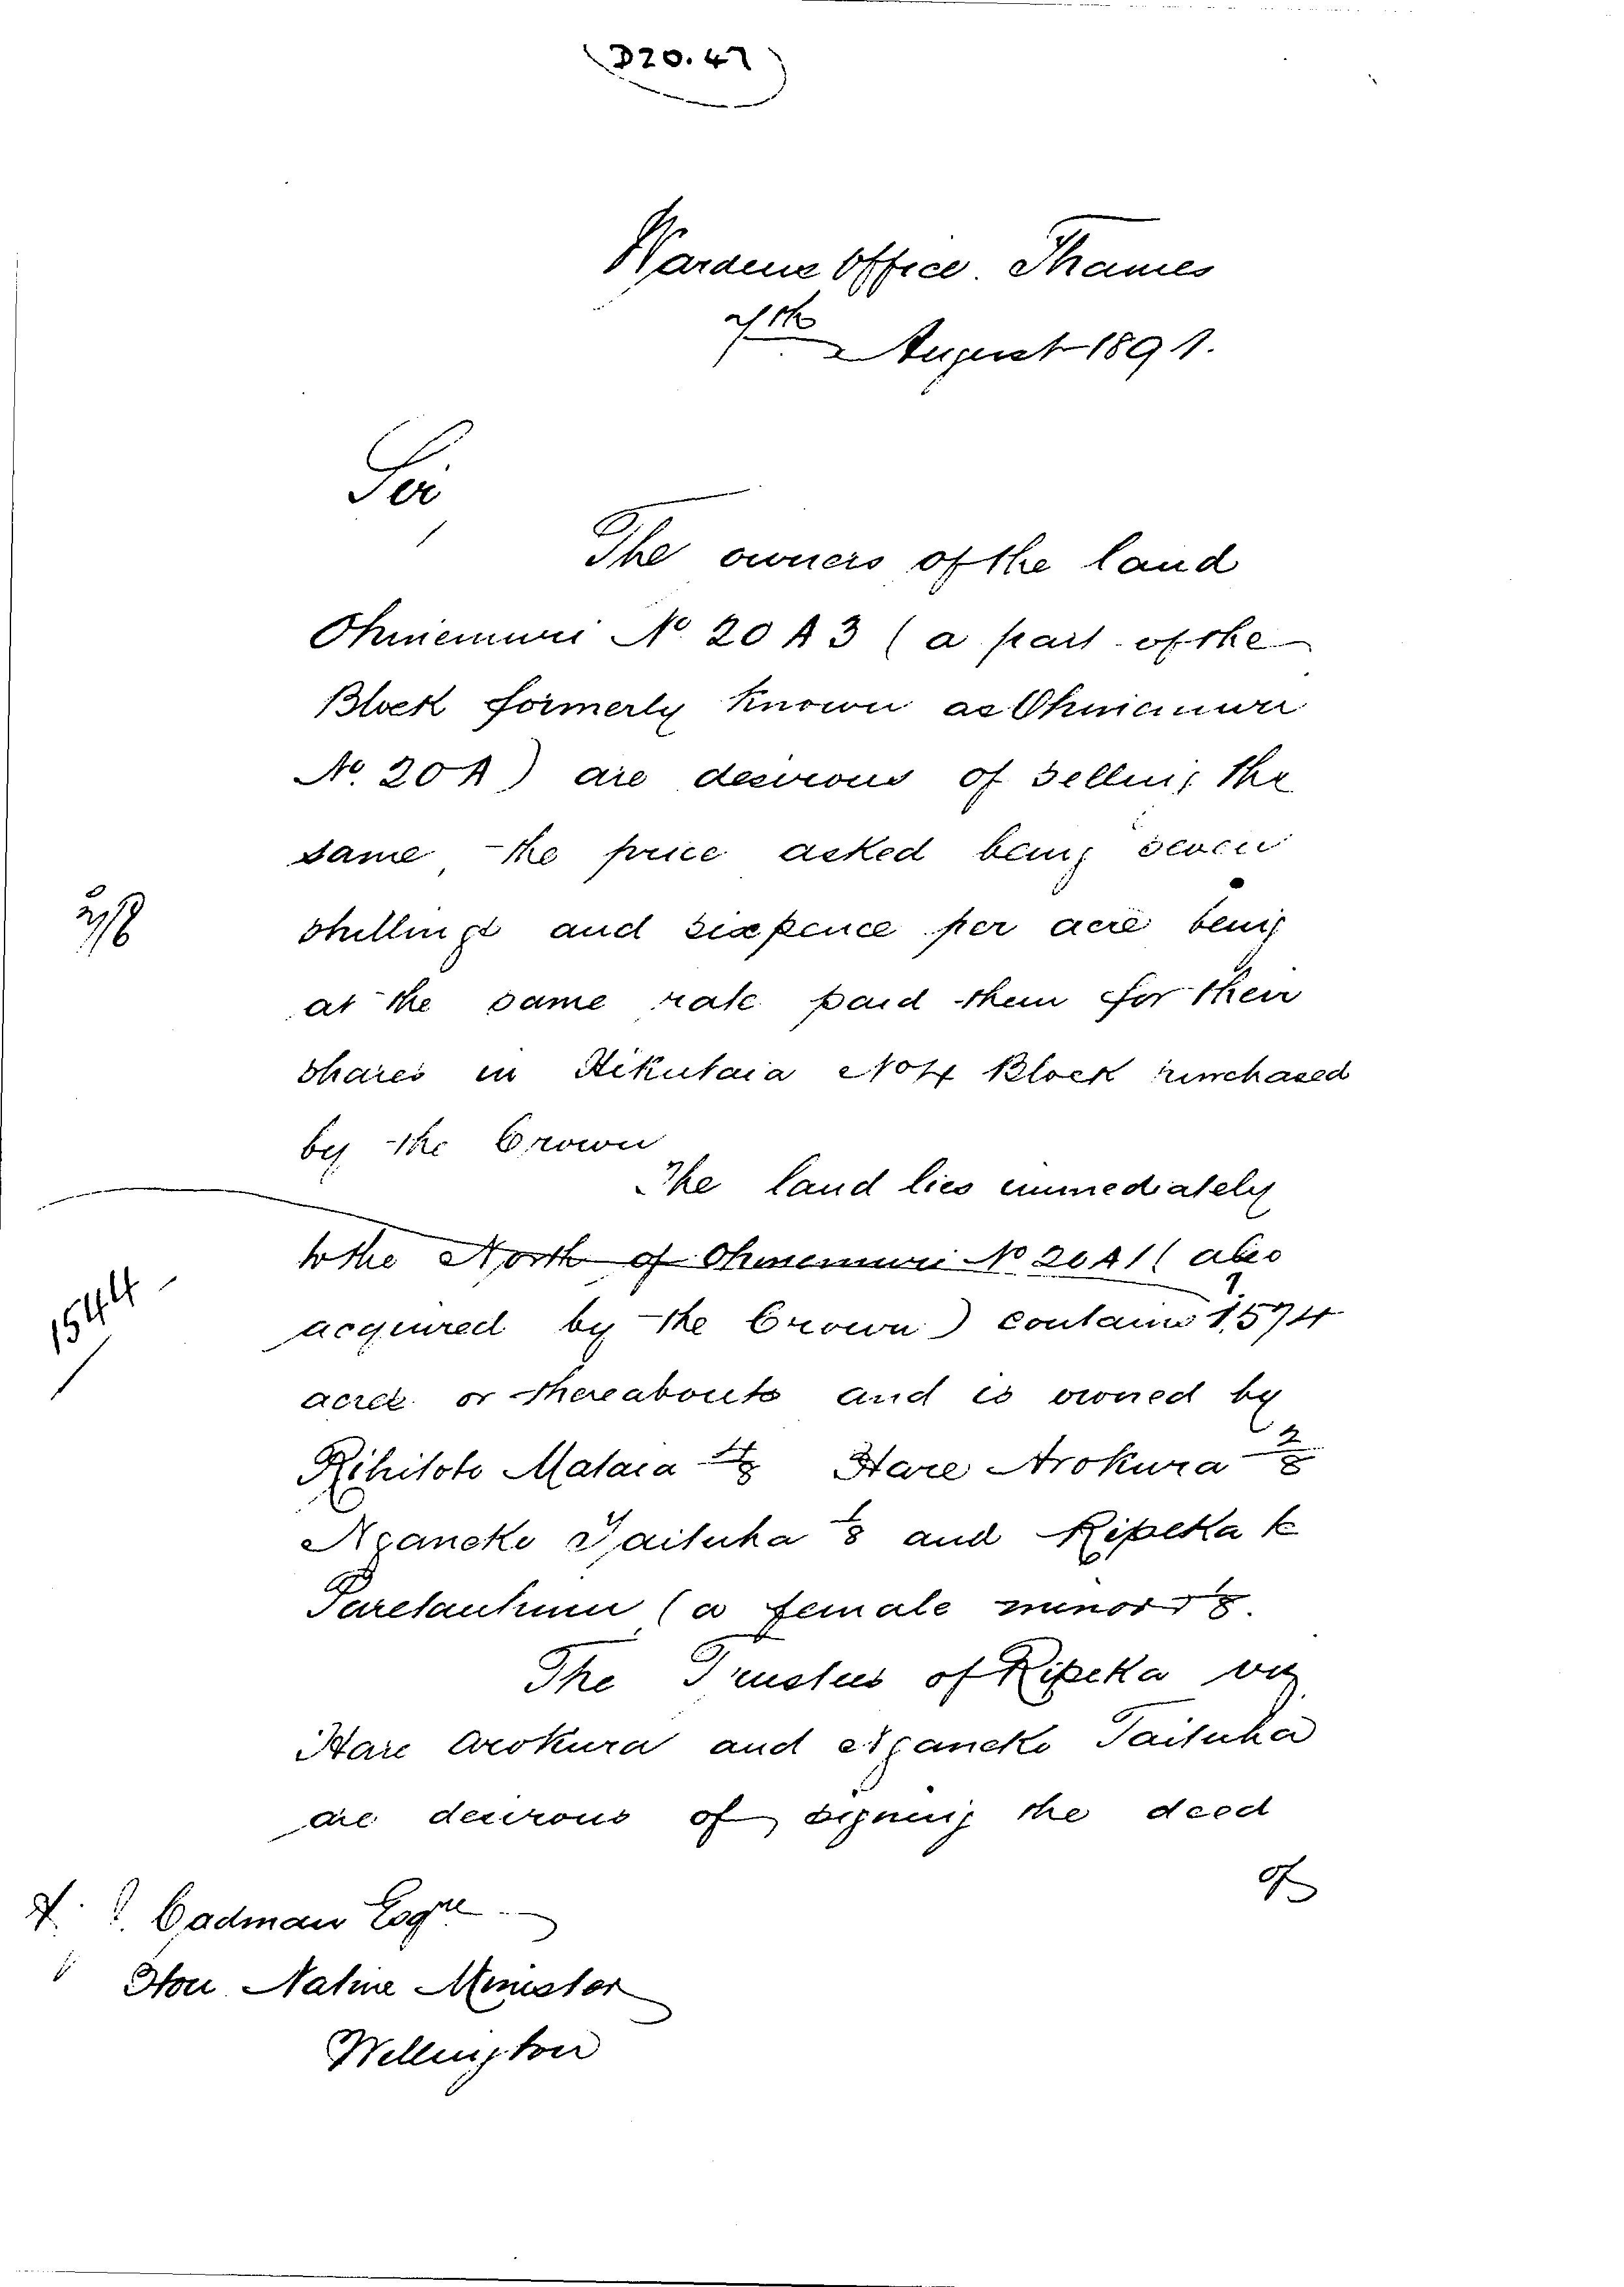 D20.47
Wardens Office Thames
7th August 1891.
Sir
The owners of the land
Ohinemuri No. 20 A 3 (a part of the
Block formerly known as Ohinemuri
No. 20 A) are desirous of selling the
same, the price asked being seven
7/6
shillings and sixpence per acre being
at the same rate paid them for their
shares in Hikutaia No 4 Block purchased
by the Crown
The land lies immediately
to the North of Ohinemuri No 20 A 1 (also
1544
acquired by the Crown) contains 1,574
acres or thereabouts and is owned by
Rihitoto Mataia 4/8 Hare Arokura 2/8
Nganeko Taituha 1/8 and Ripeka te
Paretauhinu (a female minor) 1/8.
The Trustees of Ripeka viz
Hare Arokura and Nganeko Taituha
are desirous of signing the deed
of
Cadman Esqre
Hon. Native Minister
Wellington